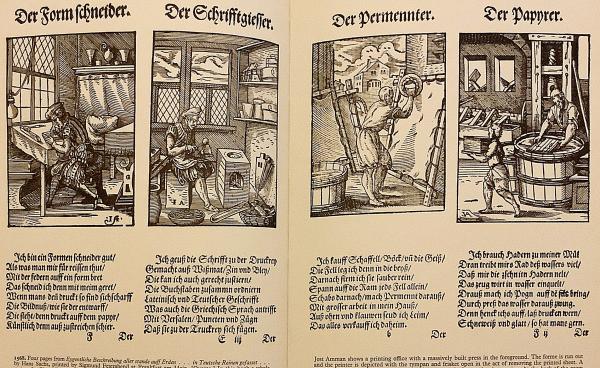 Der Formschneider.
Ich bin ein Formen schneider gut/
Als was man mir für reissen thut/
Mit der federn auff ein form bret
Das schneid ich denn mit meim geret/
Wenn mans den druckt so find sich scharff
Die Bildnuß/ wie sie der entwarff/
Die steht/ denn druckt auff dem pappyr/
Künstlich denn auß zustreichen schier.
F Der
Der Schrifftgiesser.
Ich geuß die Schrifft zu der Druckrey
Gemacht auß Wißmat/ Zin vnd Bley/
Die kan ich auch gerecht justiern/
Die Buchstaben zusammn ordniern
Lateinisch vnd Teutscher Geschrifft
Was auch die Griechisch Sprach antrifft
Mit Versalen/ Puncten vnd Zügn
Daß sie zu der Truckrey sich fügen.
E Der
Der Permennter.
Ich kauff Schaffell/ Böck/ vñ die Geiß/
Die Fell leg ich denn in die beyß/
Darnach firm ich sie sauber rein/
Spann auff die Ram jeds Fell allein/
Schabs darnach/ mach Permennt darauß/
Mit grosser arbeit in mein Hauß/
Auß ohrn vnd klauwen seud ich Leim/
Das alles verkauff ich daheim.
b Der
Der Papyrer.
Ich brauch Hadern zu meiner Mül
Dran treibt mirs Rad deß wassers viel/
Daß mir die zschnitn Hadern nelt/
Das zeug wirt in wasser einquelt/
Drauß mach ich Pogn auff dē filtz bring/
Durch preß das wasser darauß zwing.
Denn henck ichs auff/ laß drucken wern/
Schneeweiß vnd glatt/ so hat mans gern.
F ij Der
1568. Four pages from Eygentliche Beschreibung aller stände auff Erden . . . in Teutsche Reimen gefasset . . .
by Hans Sachs, printed by Sigmund Feyerabend at Frankfurt am Main.
Jost Amman shows a printing office with a massively built press in the foreground. The forme is run out
and the printer is depicted with the tympan and frisket open in the act of removing the printed sheet. A